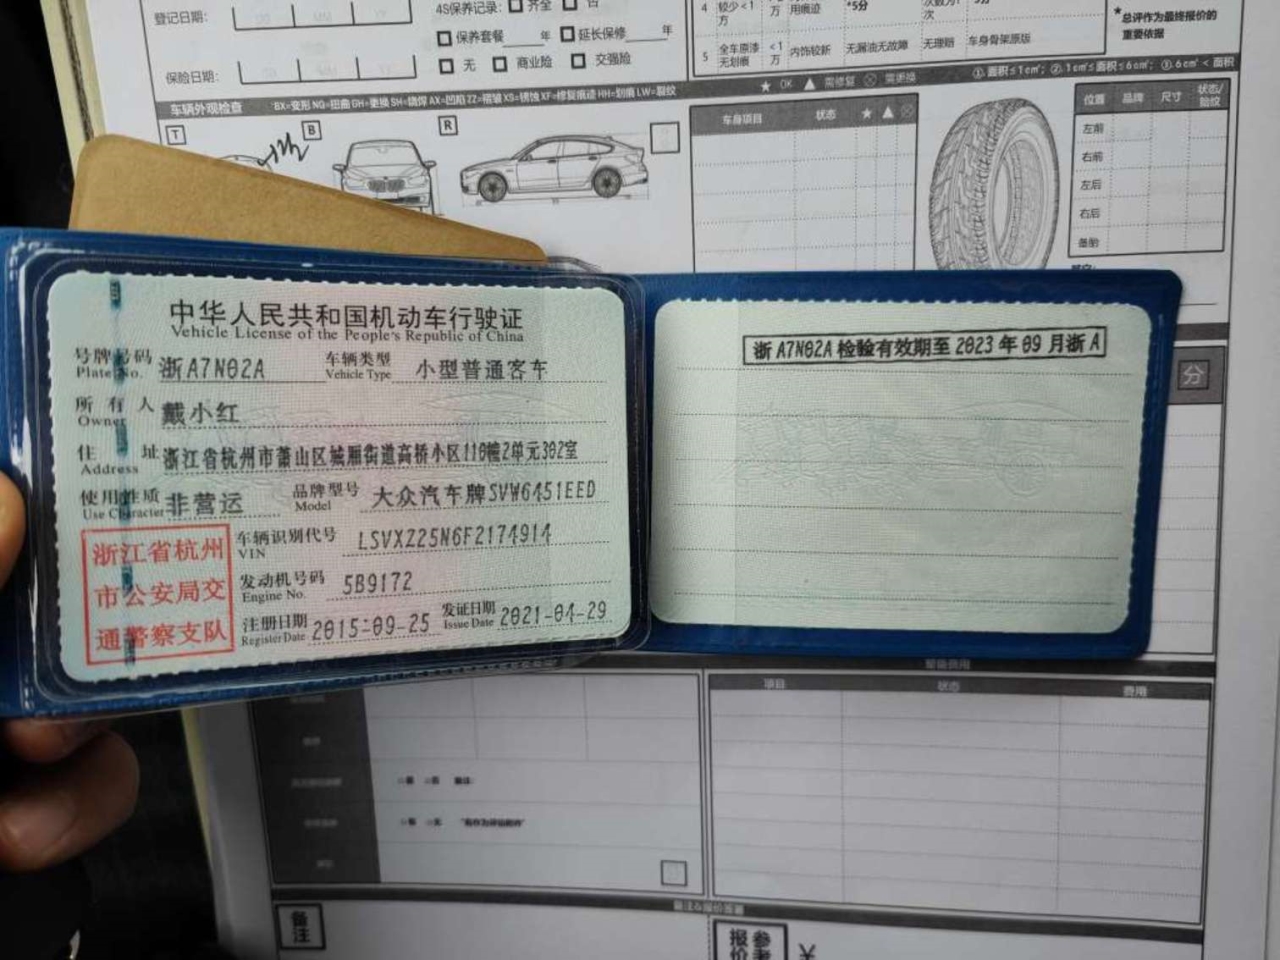 登记日期：
4S保养记录： 齐全 否
保养套餐 年 延长保修 年
保险日期：
无 商业险 交强险
4 较少<1方 用痕迹 *5分
5 全车原漆无划痕 <1万 内饰较新 无漏油无故障 无理赔 车身骨架原版
*总评作为最终报价的重要依据
车辆外观检查
★ OK ▲ 需修复 ⊗ 需更换
①.面积≤1cm²; ②.1cm²≤面积≤6cm²; ③.6cm²<面积
T B R
车身项目 状态 ★ ▲ ⊗
位置 品牌 尺寸 状态/胎纹
左前
右前
左后
右后
备胎
中华人民共和国机动车行驶证
Vehicle License of the People's Republic of China
号牌号码 浙A7N02A 车辆类型 小型普通客车
Plate No. Vehicle Type
所有人 戴小红
Owner
住址 浙江省杭州市萧山区城厢街道高桥小区110幢2单元302室
Address
使用性质 非营运 品牌型号 大众汽车牌SVW6451EED
Use Character Model
浙江省杭州
市公安局交
通警察支队
车辆识别代号 LSVXZ25N6F2174914
VIN
发动机号码 5B9172
Engine No.
注册日期 2015-09-25 发证日期 2021-04-29
Register Date Issue Date
浙A7N02A检验有效期至2023年09月浙A
分
项目 状态 费用
备注
报价参考 ¥